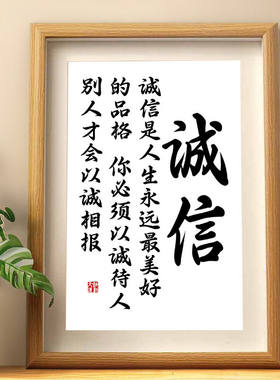 诚信
诚信是人生永远最美好
的品格 你必须以诚待人
别人才会以诚相报